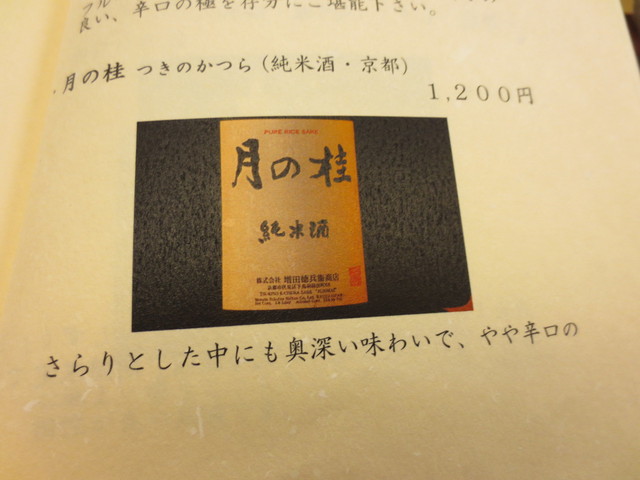 良い、辛口の極を存分にご堪能下さい。
月の桂 つきのかつら(純米酒・京都)
1,200円
PURE RICE SAKE
月の桂
純米酒
株式会社 増田德兵衞商店
さらりとした中にも奥深い味わいで、やや辛口の